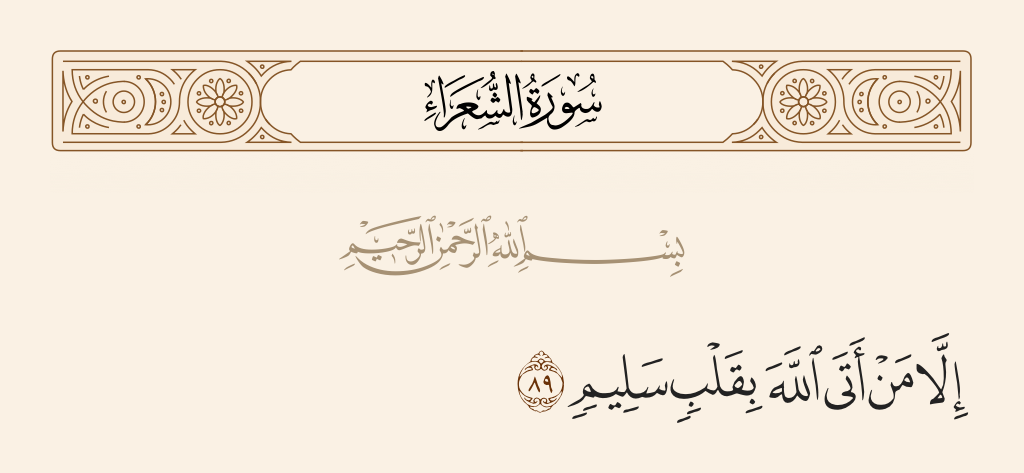 سُورَةُ الشُّعَرَاءِ
بِسْمِ ٱللَّهِ ٱلرَّحْمَٰنِ ٱلرَّحِيمِ
إِلَّا مَنْ أَتَى ٱللَّهَ بِقَلْبٍ سَلِيمٍ ٨٩